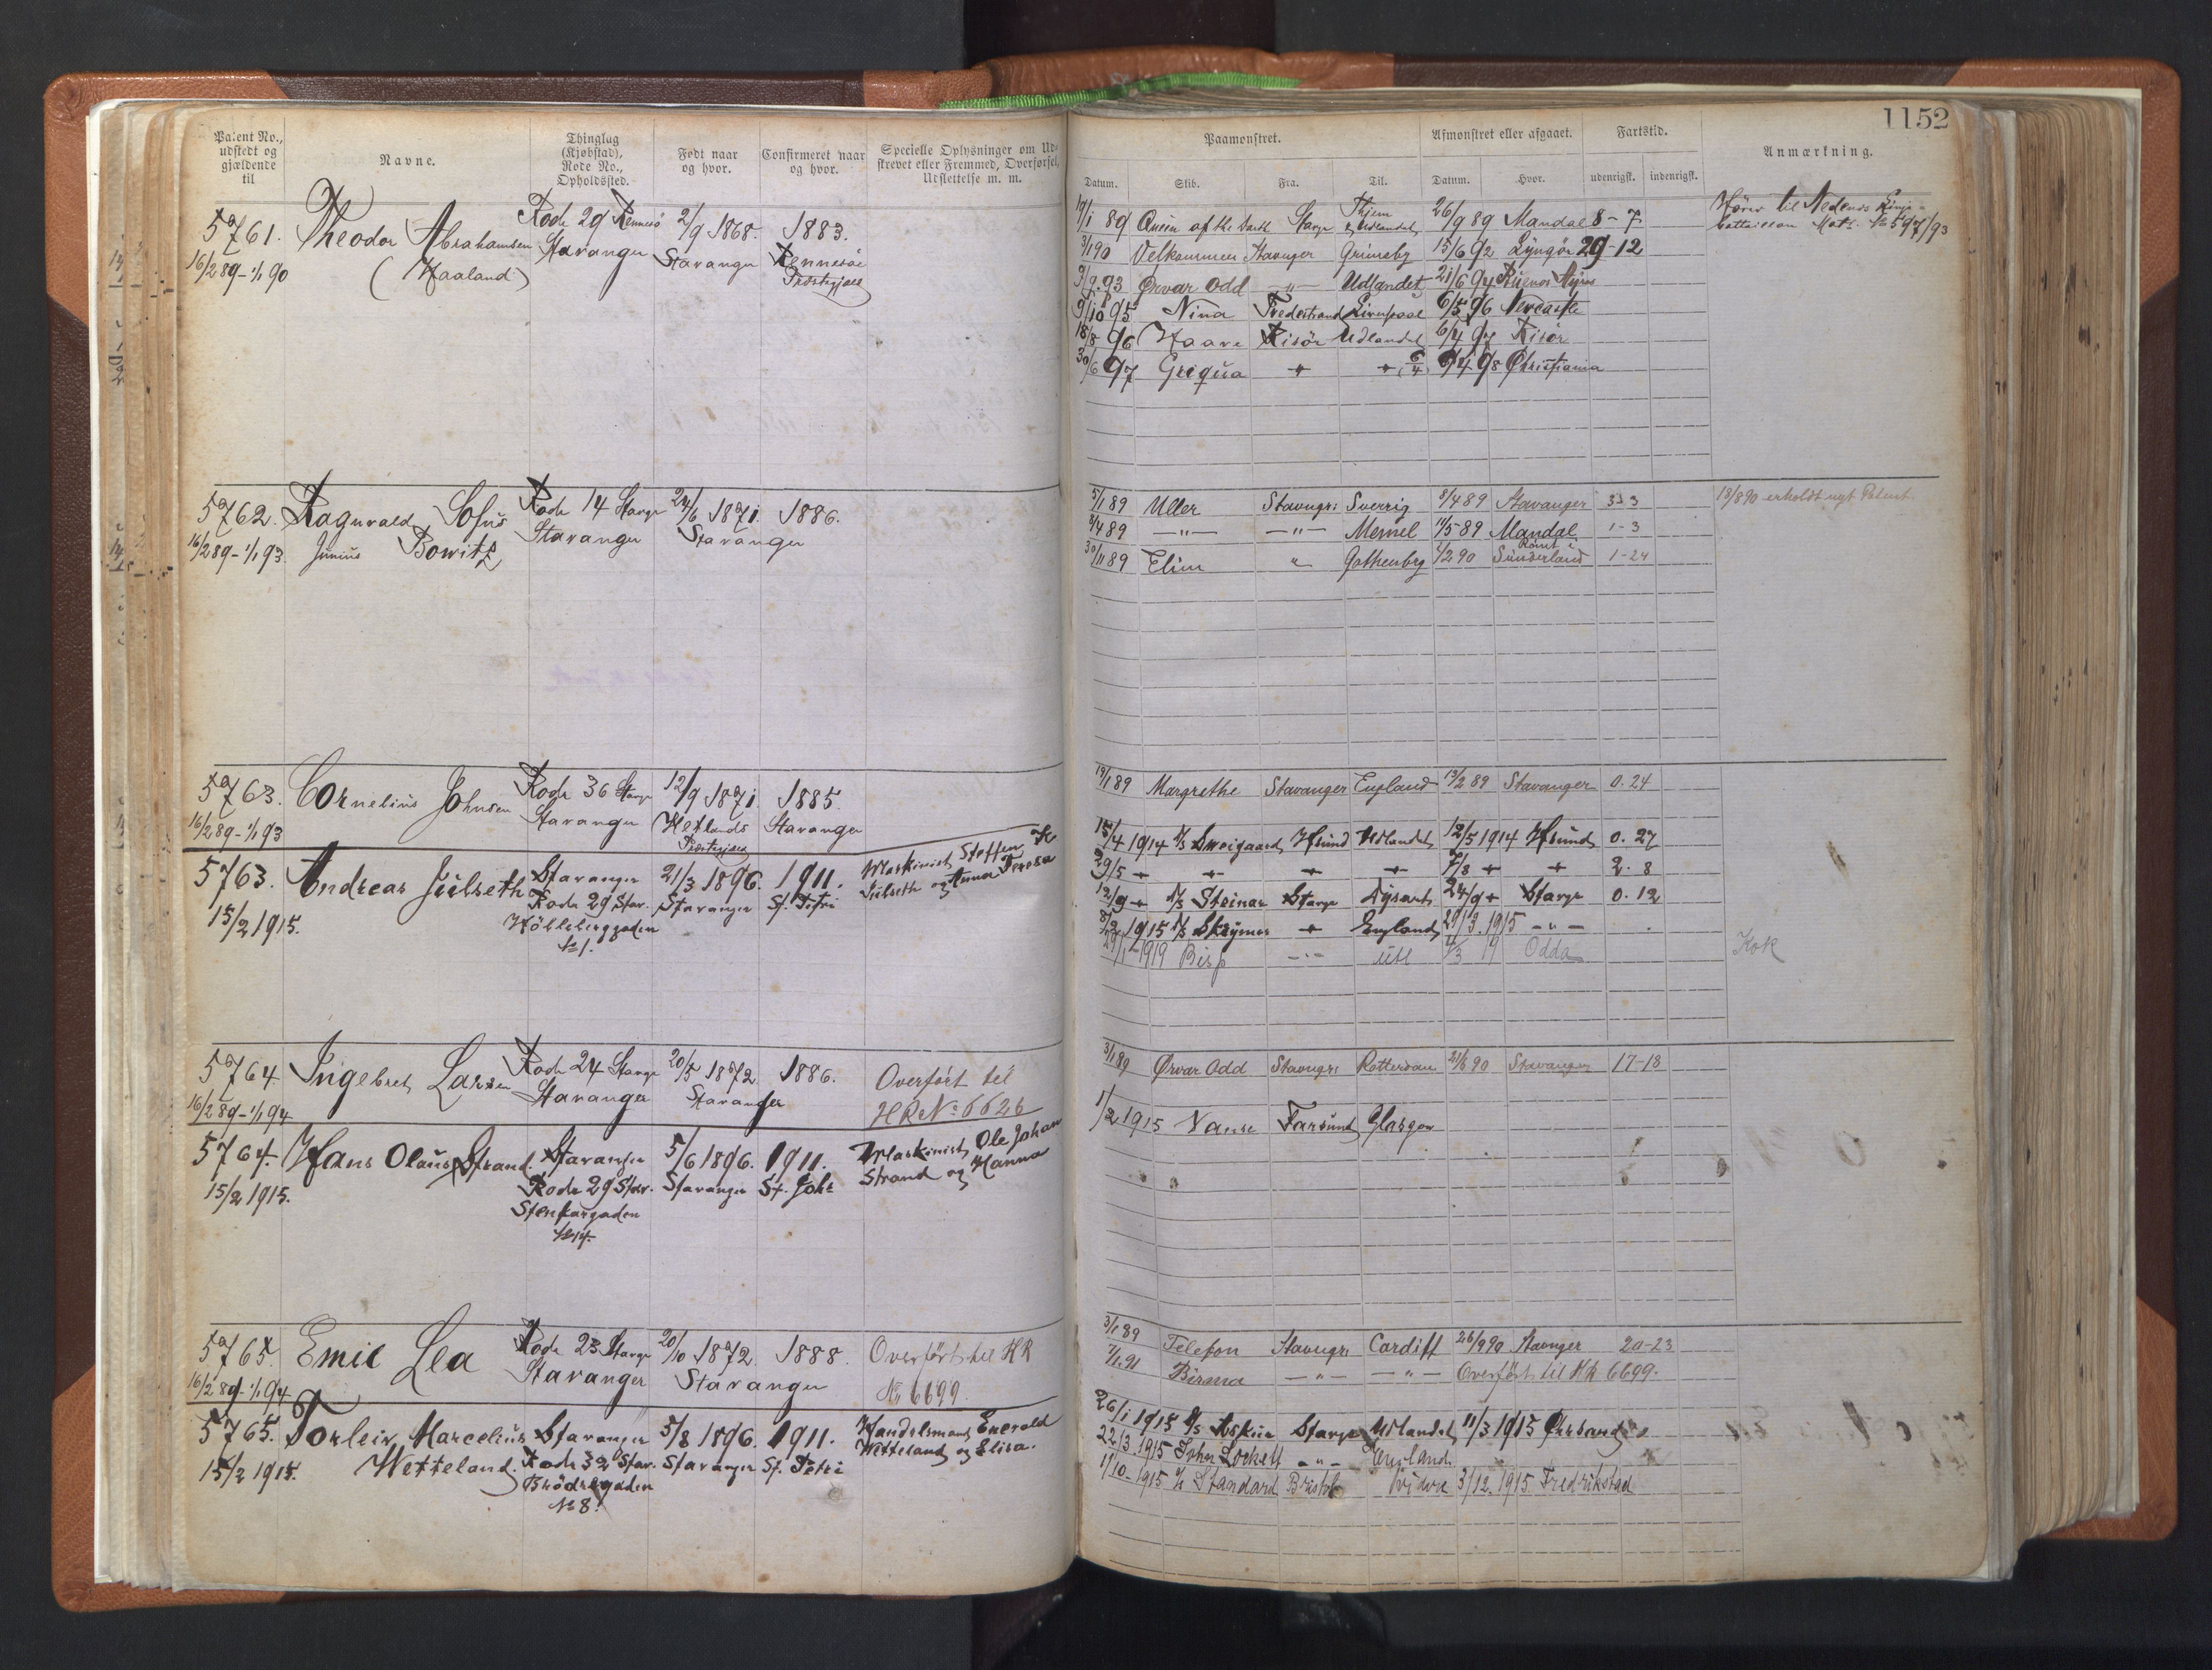 Patent No., udstedt og gjældende til
Navne.
Thinglag (Kjøbstad), Rode No., Opholdssted.
Født naar og hvor.
Confirmeret naar og hvor.
Specielle Oplysninger om Udskrevet eller Fremmed, Overførsel, Udslettelse m. m.
5761. Theodor Abrahamsen Rode 29 Rennesø 2/9 1868. 1883.
16/2 89 - 1/1 90 (Haaland) Stavanger Stavanger Rennesøe
Præstegjæld
5762. Ragnvald Sofus Rode 14 Stavgr 24/6 1871. 1886.
16/2 89 - 1/1 93. Junius Bowitz Stavanger Stavanger
5763. Cornelius Johnsen Rode 36 Stavgr 12/9 1871. 1885.
16/2 89 - 1/1 93 Stavanger Hetlands Stavanger
Præstegjæld
5763. Andreas Julseth Stavanger 21/3 1896. 1911. Maskinist Steffen K
15/2 1915. Rode 29 Stav. Stavanger St. Petri Julseth og Anna Teresa
№ 1.
5764 Ingebret Larsen Rode 24 Stavgr 20/5 1872 1886. Overført til
16/2 89 - 1/1 94 Stavanger Stavanger HR № 6626
5764. Hans Olaus Strand. Stavanger 5/6 1896. 1911. Maskinist Ole Johan
15/2 1915. Rode 29 Stav. Stavanger St. Joh: Strand og Hanna
Stenkargaden
№ 14.
5765. Emil Lea Rode 23 Stavgr 20/10 1872. 1888. Overført til HR
16/2 89 - 1/1 94 Stavanger Stavanger № 6699
5765. Torleiv Marcelius Stavanger 5/8 1896. 1911. Handelsmand Enevald
15/2 1915. Wetteland. Rode 32 Stav. Stavanger St. Petri Wetteland og Elisa.
Brødregaden
№ 8.
1152
Paamønstret.
Afmønstret eller afgaaet.
Fartstid.
Anmærkning.
Datum. Skib. Fra. Til. Datum. Hvor. udenrigsk. indenrigsk.
89 Queen of the Stavgr Thjem og Udlandet 26/9 89 Mandal 8 - 7 Hører til Nedenes
3/1 90 Velkommen Stavanger Grimsby 15/6 92 Lyngør 29 - 12
93 Ørvar Odd - " - Udlandet 21/6 94 Buenos Ayres
9/10 95 Nina Fredrikstrand Liverpool 6/5 96 Newcastle
18/8 96 Risør Udlandet 6/4 97 Risør
30/6 97 Grequa + + 98 Christiania
5/1 89 Uller Stavngr: Sverrig 8/4 89 Stavanger 3-3 13/8 90 erholdt nyt Patent.
89 - " - - " - Memel 89 Mandal 1 - 3
30/11 89 Elim " Gothenbrg 90 Rømt i Sunderland 1 - 24
19/1 89 Margrethe Stavanger England 13/2 89 Stavanger 0. 24
15/4 1914 D/S Sveigaard Hsund Udlandet 12/5 1914 Hsund 0. 27
29/5 + + + + 7/8 + + 2. 8
12/9 + D/S Steinar Stavgr Dysart 24/9 + Stavgr 0. 12
1915 D/S Skrymer + England 29/3. 1915 - " -
1919 Bisp - " - utl 19 Odda Kok
3/1 89 Ørvar Odd Stavngr: Rotterdam 90 Stavanger 17-18
1/2 1915 Farsund Glasgow
3/1 89 Telefon Stavngr: Cardiff 26/9 90 Stavnger 20-23
7/1 91 Birma - " - - " - Overført til HR 6699.
26/1 1915 Askur Stavgr Udlandet 11/3 1915 Chrsand
22/3. 1915 John Lockett - " - England
11/10 - 1915 Standard Bristol videre 3/12. 1915 Fredrikstad